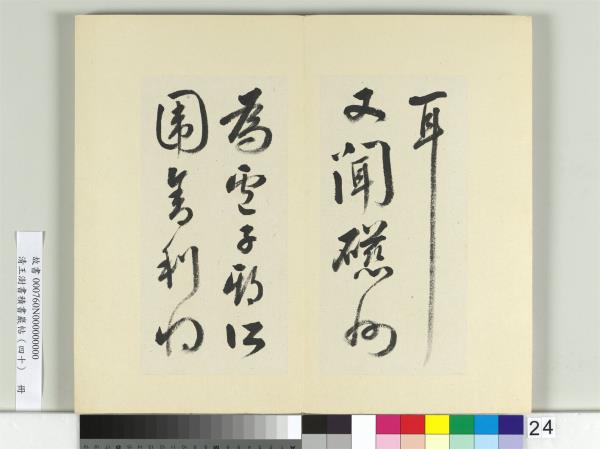 耳
又聞磁州
為盧子期所
圍舍利將
故書 000760N000000000
清王澍書積書巖帖（四十） 冊
24